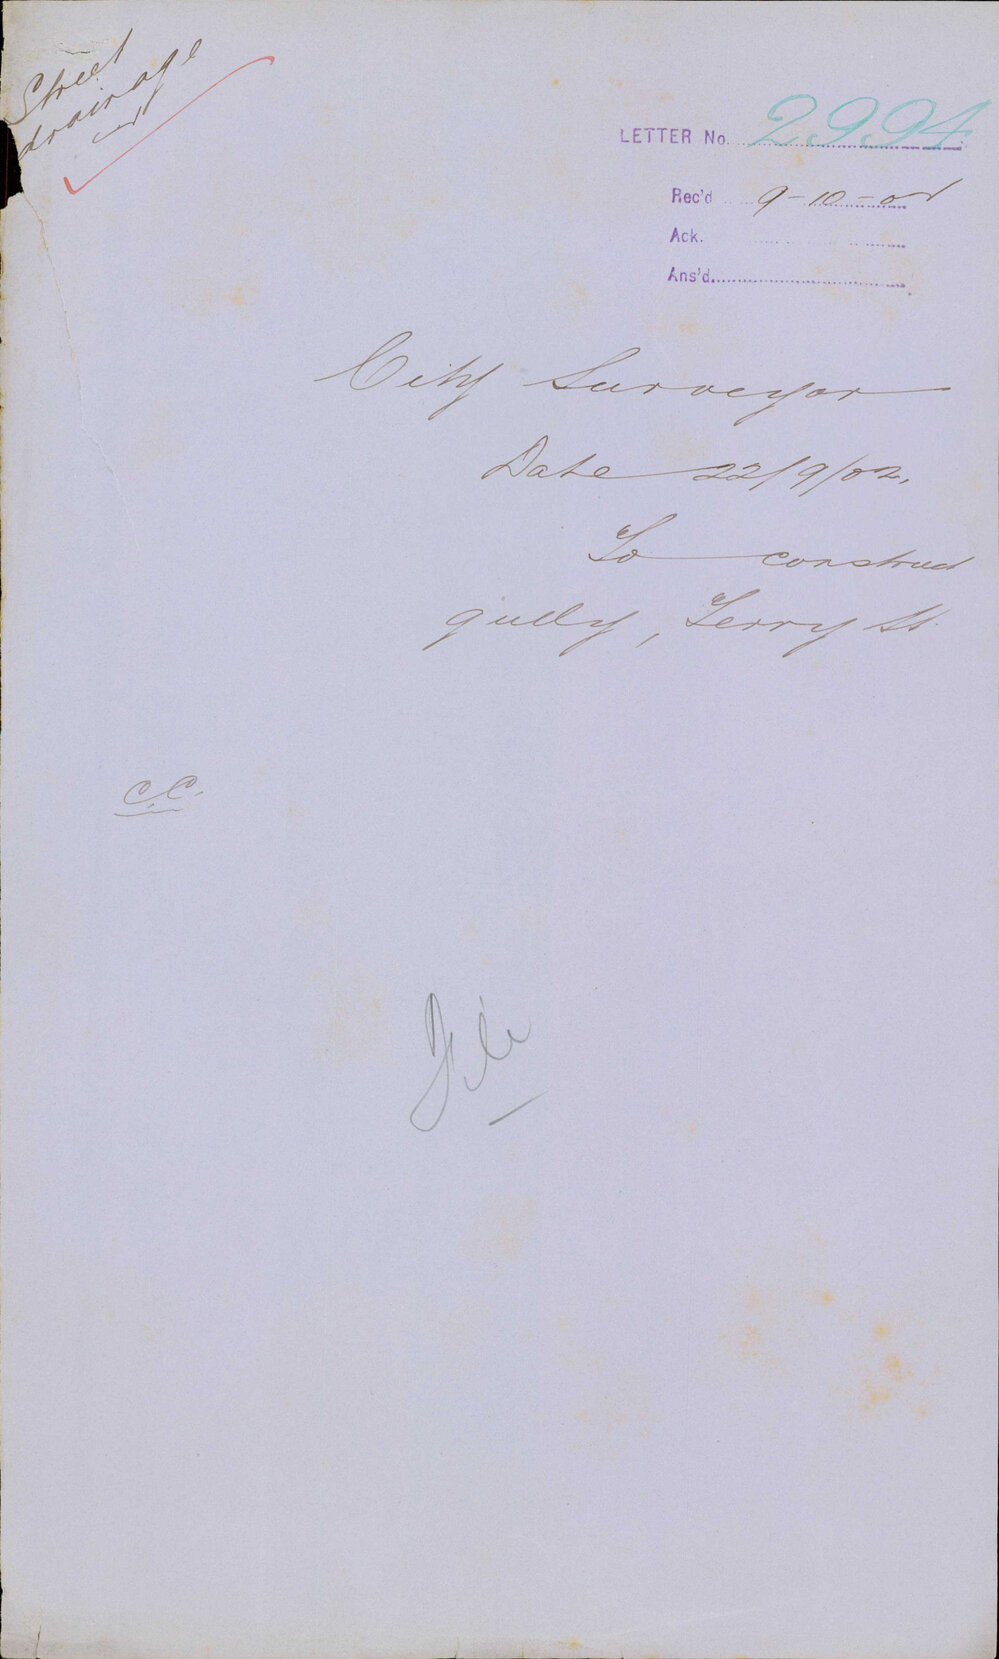 Street
drainage
LETTER No. 2994
Rec'd 9-10-02
Ack.
Ans'd.
City Surveyor
Date 22/9/02.
To construct
gully, Terry St.
C.C.
File